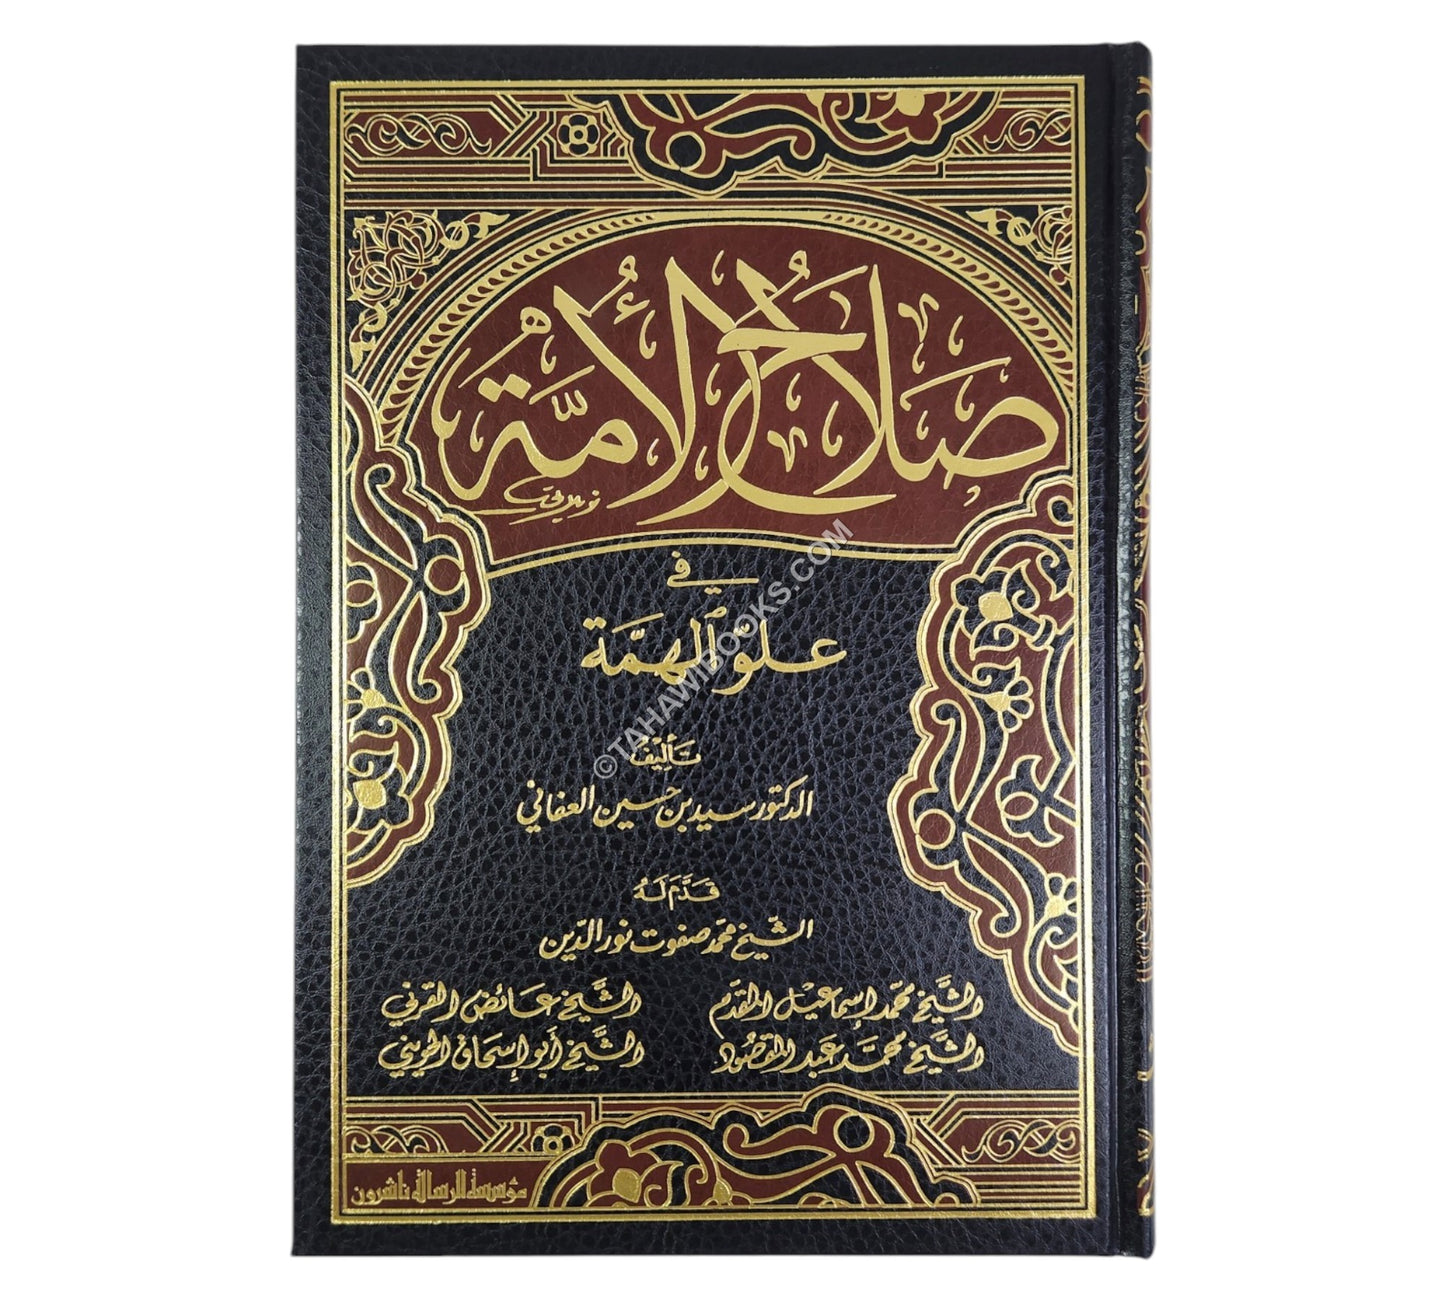 صَلَاحُ الأُمَّة
في
علوّ الهمّة
تأليف
الدكتور سيد بن حسين العفاني
قَدَّمَ لَهُ
الشيخ محمد صفوت نور الدّين
الشيخ محمّد إسماعيل المقدّم الشيخ عائض القرني
الشيخ محمّد عبد المقصود الشيخ أبو إسحاق الحويني
مؤسسة الرسالة ناشرون
©TAHAWIBOOKS.COM